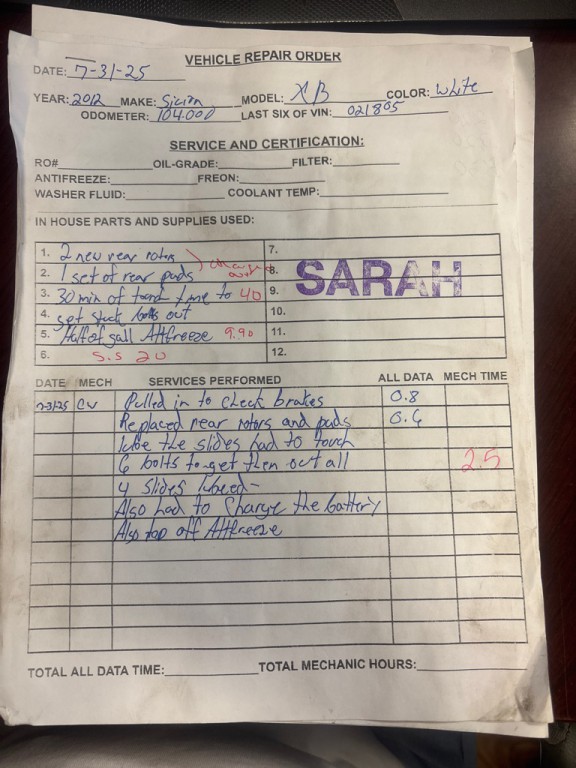 VEHICLE REPAIR ORDER
DATE: 7-31-25
YEAR: 2012 MAKE: Sicion MODEL: XB COLOR: White
ODOMETER: 104.000 LAST SIX OF VIN: 021805
SERVICE AND CERTIFICATION:
RO# OIL-GRADE: FILTER:
ANTIFREEZE: FREON:
WASHER FLUID: COOLANT TEMP:
IN HOUSE PARTS AND SUPPLIES USED:
1. 2 new rear rotors 7.
2. 1 set of rear pads 8.
3. 30 min of torch time to 40 9.
SARAH
4. get stuck bolts out 10.
5. Half of gall Attfreeze 9.90 11.
6. S.S 20 12.
DATE MECH SERVICES PERFORMED ALL DATA MECH TIME
7-31-25 CV Pulled in to check brakes 0.8
Replaced rear rotors and pads 0.6
lube the slides had to touch
6 bolts to get them out all 2.5
4 slides lubeed-
Also had to charge the battery
Also top off Attfreeze
TOTAL ALL DATA TIME: TOTAL MECHANIC HOURS: